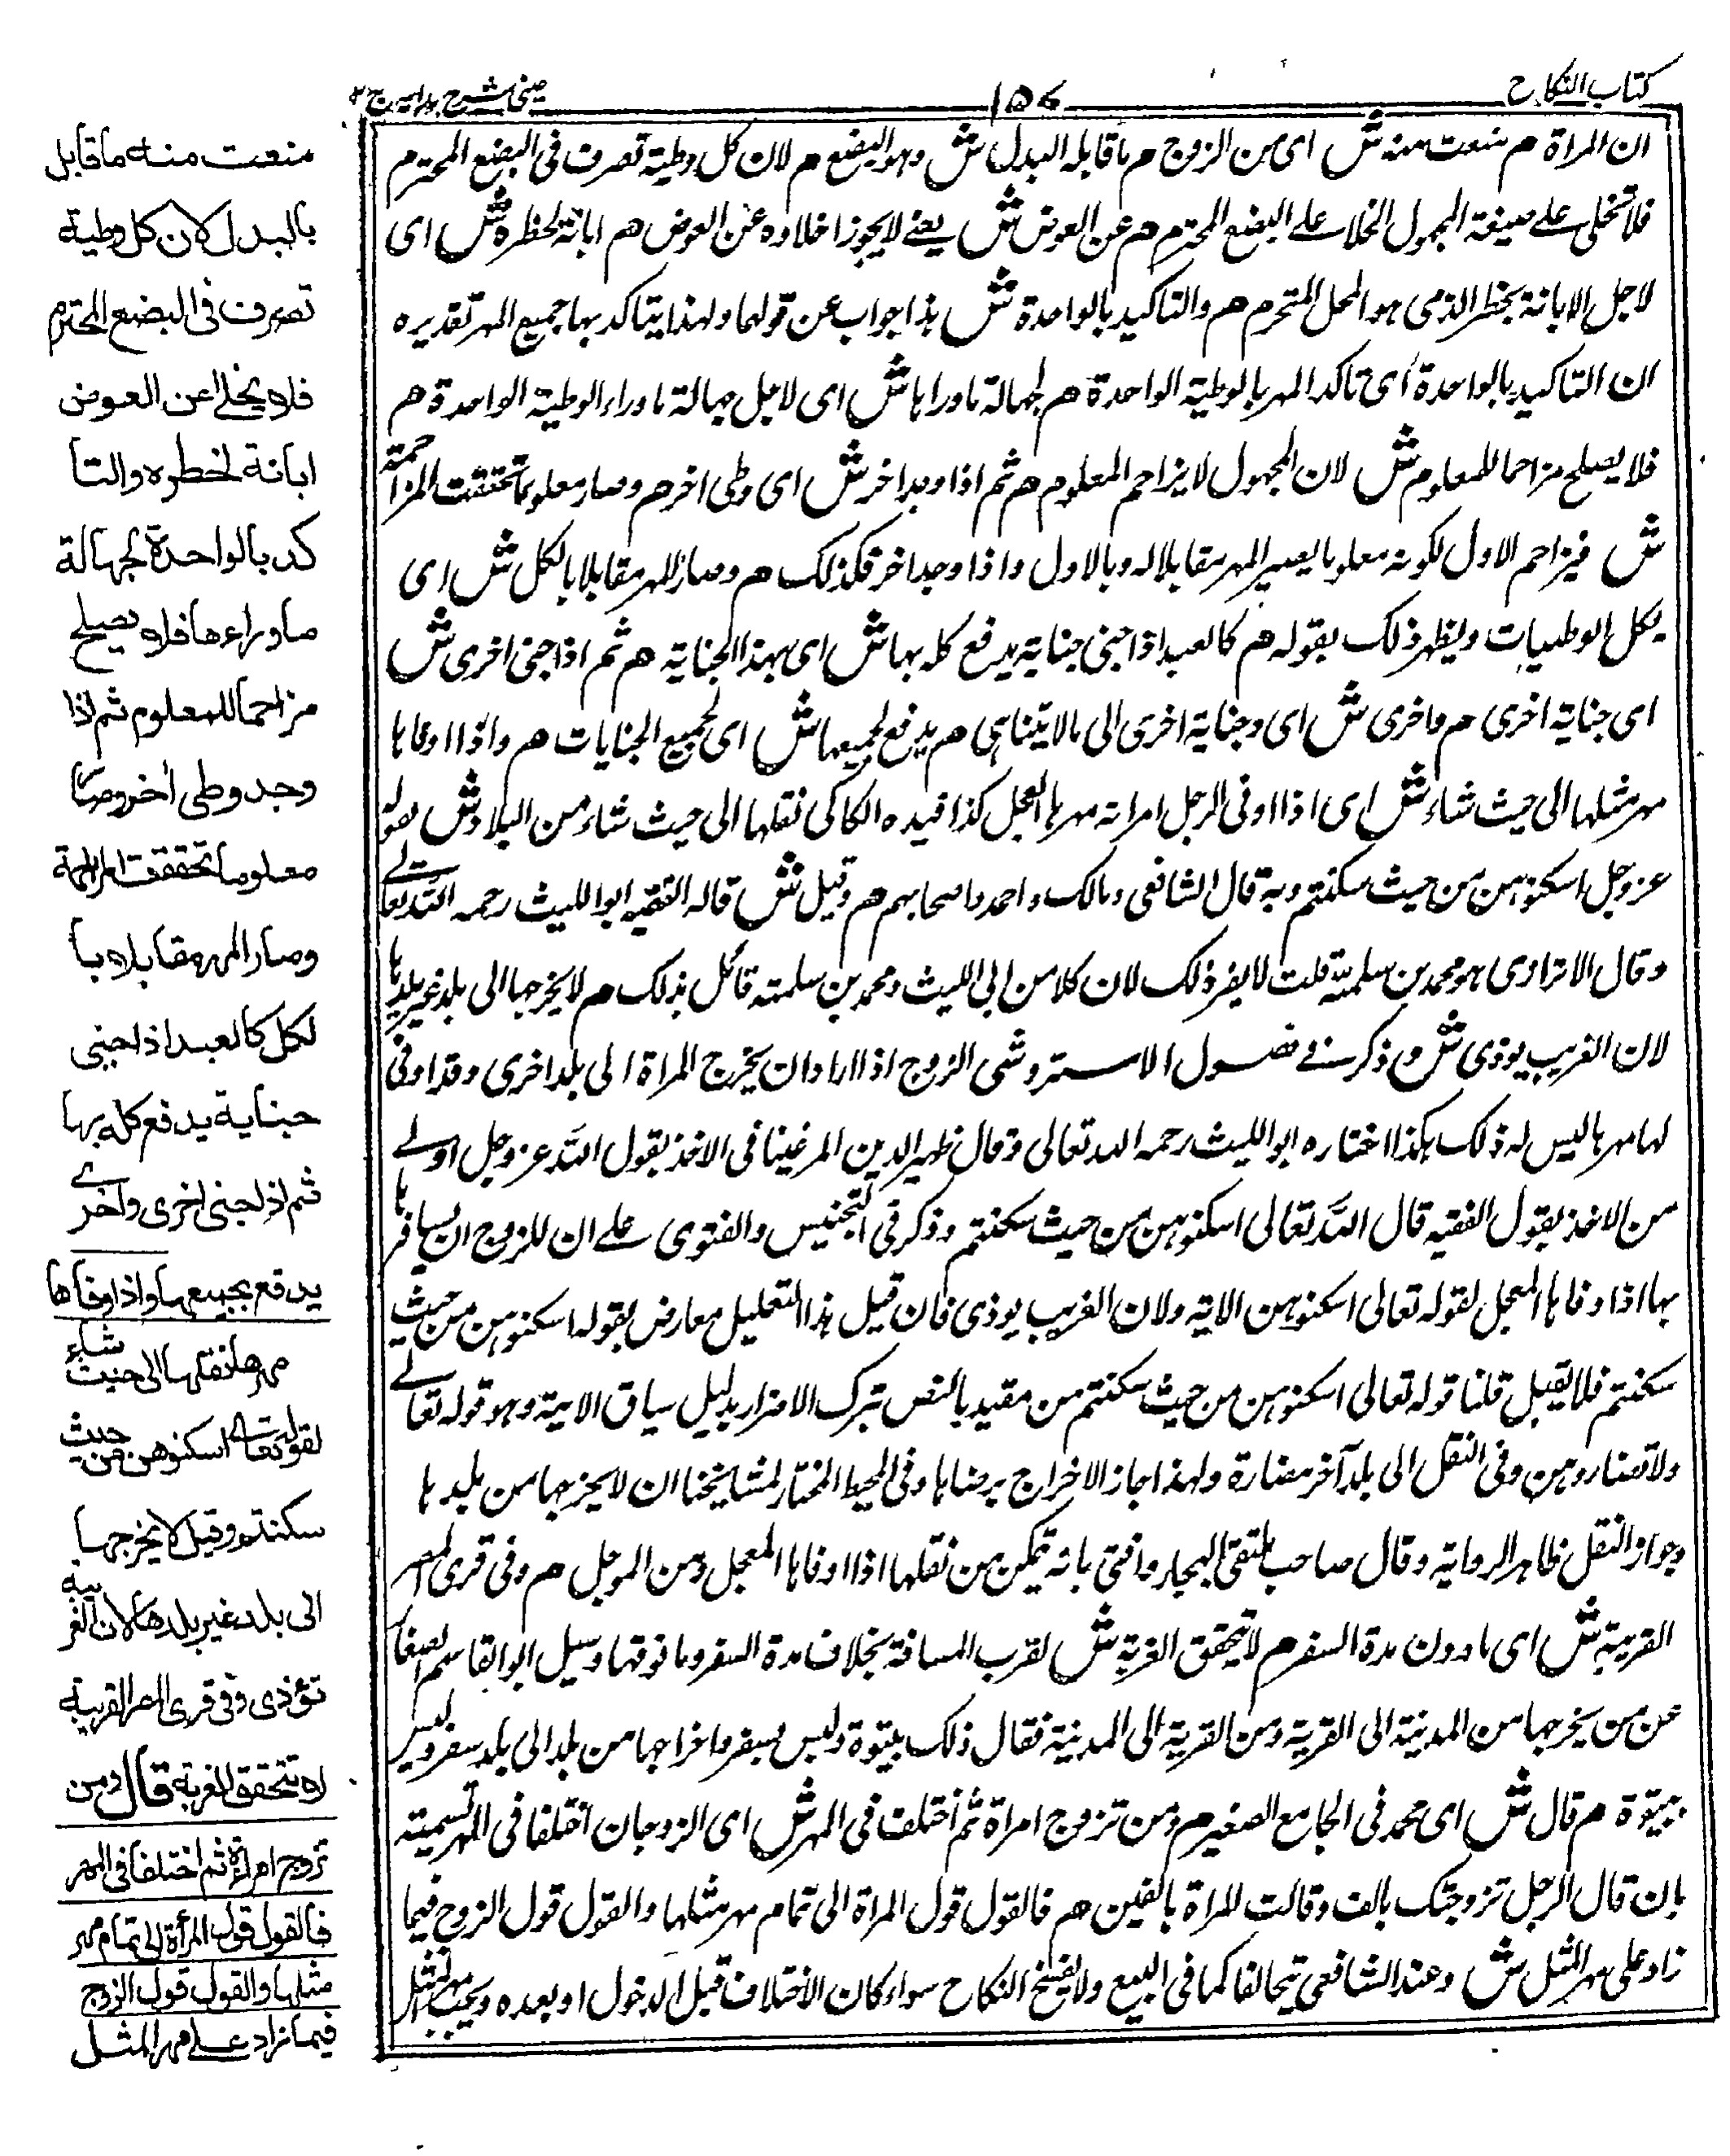 كتاب النكاح
١٥٤
عينى شرح هدايه ج ٢
ان المراة م منعت منه ش اى من الزوج م ما قابله البدل ش وهو البضع م لان كل وطية تصرف فى البضع المحترم
فلا تخلى على صيغة المجهول اخلا على البضع المحترم هم عن العوض ش يعنے لا يجوز اخلاوه عن العوض هم ابانة لخطره ش اى
لاجل الابانة بخطر الذى هو المحل المتحرم هم والتاكيد بالواحدة ش هذا جواب عن قولهما ولهذا يتاكد بها جميع المهر تقديره
ان التاكيد بالواحدة اى تاكد المهر بالوطية الواحدة هم لجهالة ما وراها ش اى لاجل جهالة ما وراء الوطية الواحدة هم
فلا يصلح مزاحما للمعلوم ش لان المجهول لا يزاحم المعلوم هم ثم اذا وجد اخر ش اى وطى اخر هم وصار معلوما تحققت المزاحمة
ش فيزاحم الاول لكونه معلوما يصير المهر مقابلا له وبالاول واذا وجد اخر فكذلك هم وصار المهر مقابلا بالكل ش اى
بكل الوطيات ويظهر ذلك بقوله هم كالعبد اذا جنى جناية يدفع كله بها ش اى بهذا الجناية هم ثم اذا جنى اخرى ش
اى جناية اخرى م واخرى ش اى وجناية اخرى الى مالا يتناهى هم يدفع لجميعها ش اى لجميع الجنايات هم واذا اوفاها
مهر مثلها الى حيث شاء ش اى اذا اوفى الرجل امراته مهرها المعجل كذا قيده الكاكى نقلها الى حيث شاء من البلاد ش لقوله
عز وجل اسكنوهن من حيث سكنتم وبه قال الشافعى ومالك واحمد واصحابهم هم وقيل ش قاله الفقيه ابو الليث رحمه الله تعالے
وقال الاترازى هو محمد بن سلمية قلت لا يضر ذلك لان كلا من ابى الليث ومحمد بن سلمته قائل بذلك م لا يخرجها الى بلد غير بلدها
لان الغريب يوذى ش وذكر فے فصول الاستروشنى الزوج اذا اراد ان يخرج المراة الى بلد اخرى وقد اوفى
لها مهرها ليس له ذلك هكذا اختاره ابو الليث رحمه الله تعالى وقال ظهير الدين المرغينانى الاخذ بقول الله عز وجل اولے
من الاخذ بقول الفقيه قال الله تعالى اسكنوهن من حيث سكنتم وذكر فى التجنيس والفتوى علے ان للزوج ان يسافر
بها اذا وفاها المعجل لقوله تعالى اسكنوهن الاية ولان الغريب يوذى فان قيل هذا التعليل معارض لقوله اسكنوهن من حيث
سكنتم فلا يقبل قلنا قوله تعالى اسكنوهن من حيث سكنتم من مقيد بالنص بترك الاضرار بدليل سياق الاية وهو قوله تعالے
ولا تضاروهن وفى النقل الى بلد آخر مضارة ولهذا جاز الاخراج برضاها وفى المحيط المختار لمشايخنا ان لا يخرجها من بلدها
وجواز النقل ظاهر الرواية وقال صاحب ملتقى البحار وافتى بانه تمكن من نقلها اذا اوفاها المعجل ومن الموجل هم وفى قرى المصر
القريبة ش اى ما دون مدة السفر م لا تتحقق الغربة ش لقرب المسافة بخلاف مدة السفر وما فوقها وسيل ابو القاسم الصفار
عن من يخرجها من المدينة الى القرية ومن القرية الى المدينة فقال ذلك بيتوة وليس بسفر واخراجها من بلد الى بلد سفر وليس
ببيتوة م قال ش اى محمد فى الجامع الصغير م ومن تزوج امراة ثم اختلف فى المهر ش اى الزوجان اختلفا فى المهر تسميته
بان قال الرجل تزوجتك بالف وقالت المراة بالفين هم فالقول قول المراة الى تمام مهر مثلها والقول قول الزوج فيما
زاد على مهر المثل ش وعند الشافعى يتحالفا كما فى البيع ولا يفسخ النكاح سواء كان الاختلاف قبل الدخول او بعده ويجب مهر المثل
منعت منه ما قابل
بالبدل لان كل وطية
تصرف فى البضع المحترم
فلا يخلے عن العوض
ابانة لخطره والتا
كد بالواحدة لجهالة
ماوراءها فلا يصلح
مزاحما للمعلوم ثم اذا
وجد وطى اخر وصار
معلوما تحققت المزاحمة
وصار المهر مقابلا با
لكل كالعبد اذا جنى
جناية يدفع كله بها
ثم اذا جنى اخرى واخرے
يدفع بجميعها واذا وفاها
مهرها نقلها الى حيث شاء
لقوله تعالے اسكنوهن من حيث
سكنتم وقيل لا يخرجها
الى بلد غير بلدها لان الغريبة
تؤذى وفى قرى المصر القريبة
لا تتحقق الغربة قال ومن
تزوج امراة ثم اختلفا فى المهر
فالقول قول المرأة الى تمام مهر
مثلها والقول قول الزوج
فيما زاد علے مهر المثل